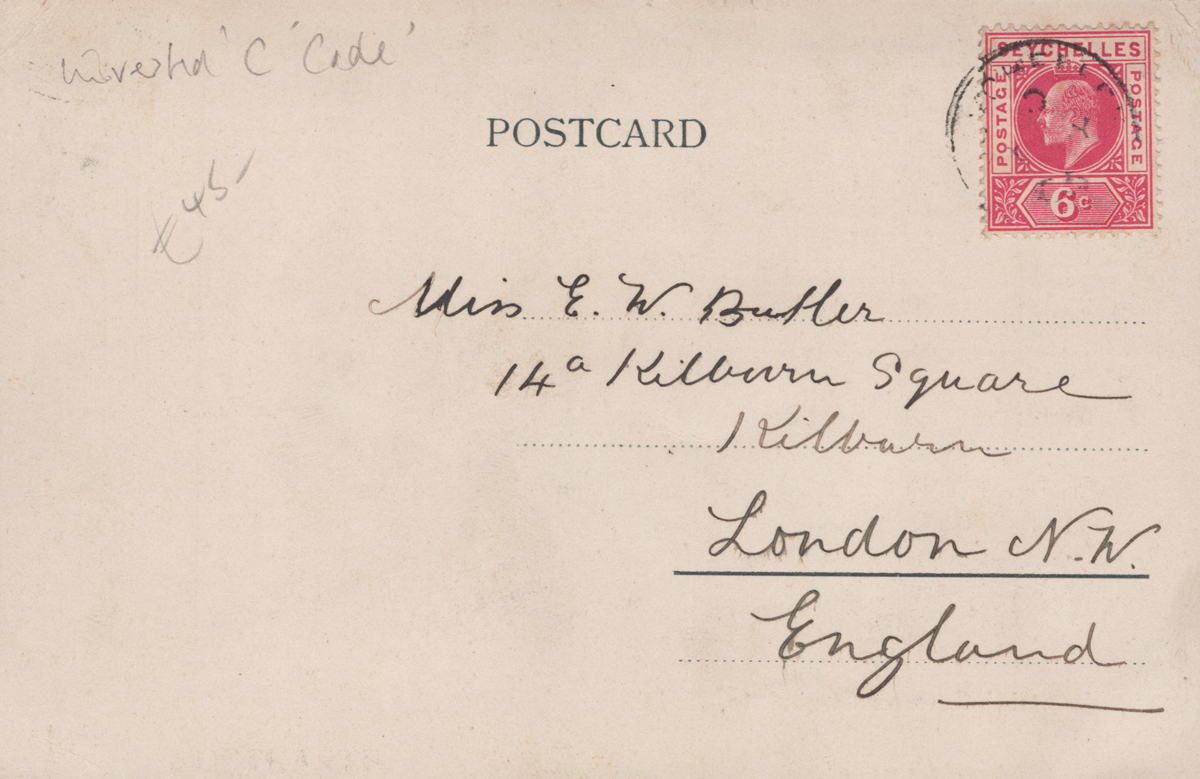 inverted 'C' 'Code'
£45
POSTCARD
SEYCHELLES
POSTAGE
POSTAGE
6c
Miss E. W. Butler
14a Kilburn Square
Kilburn
London N.W.
England